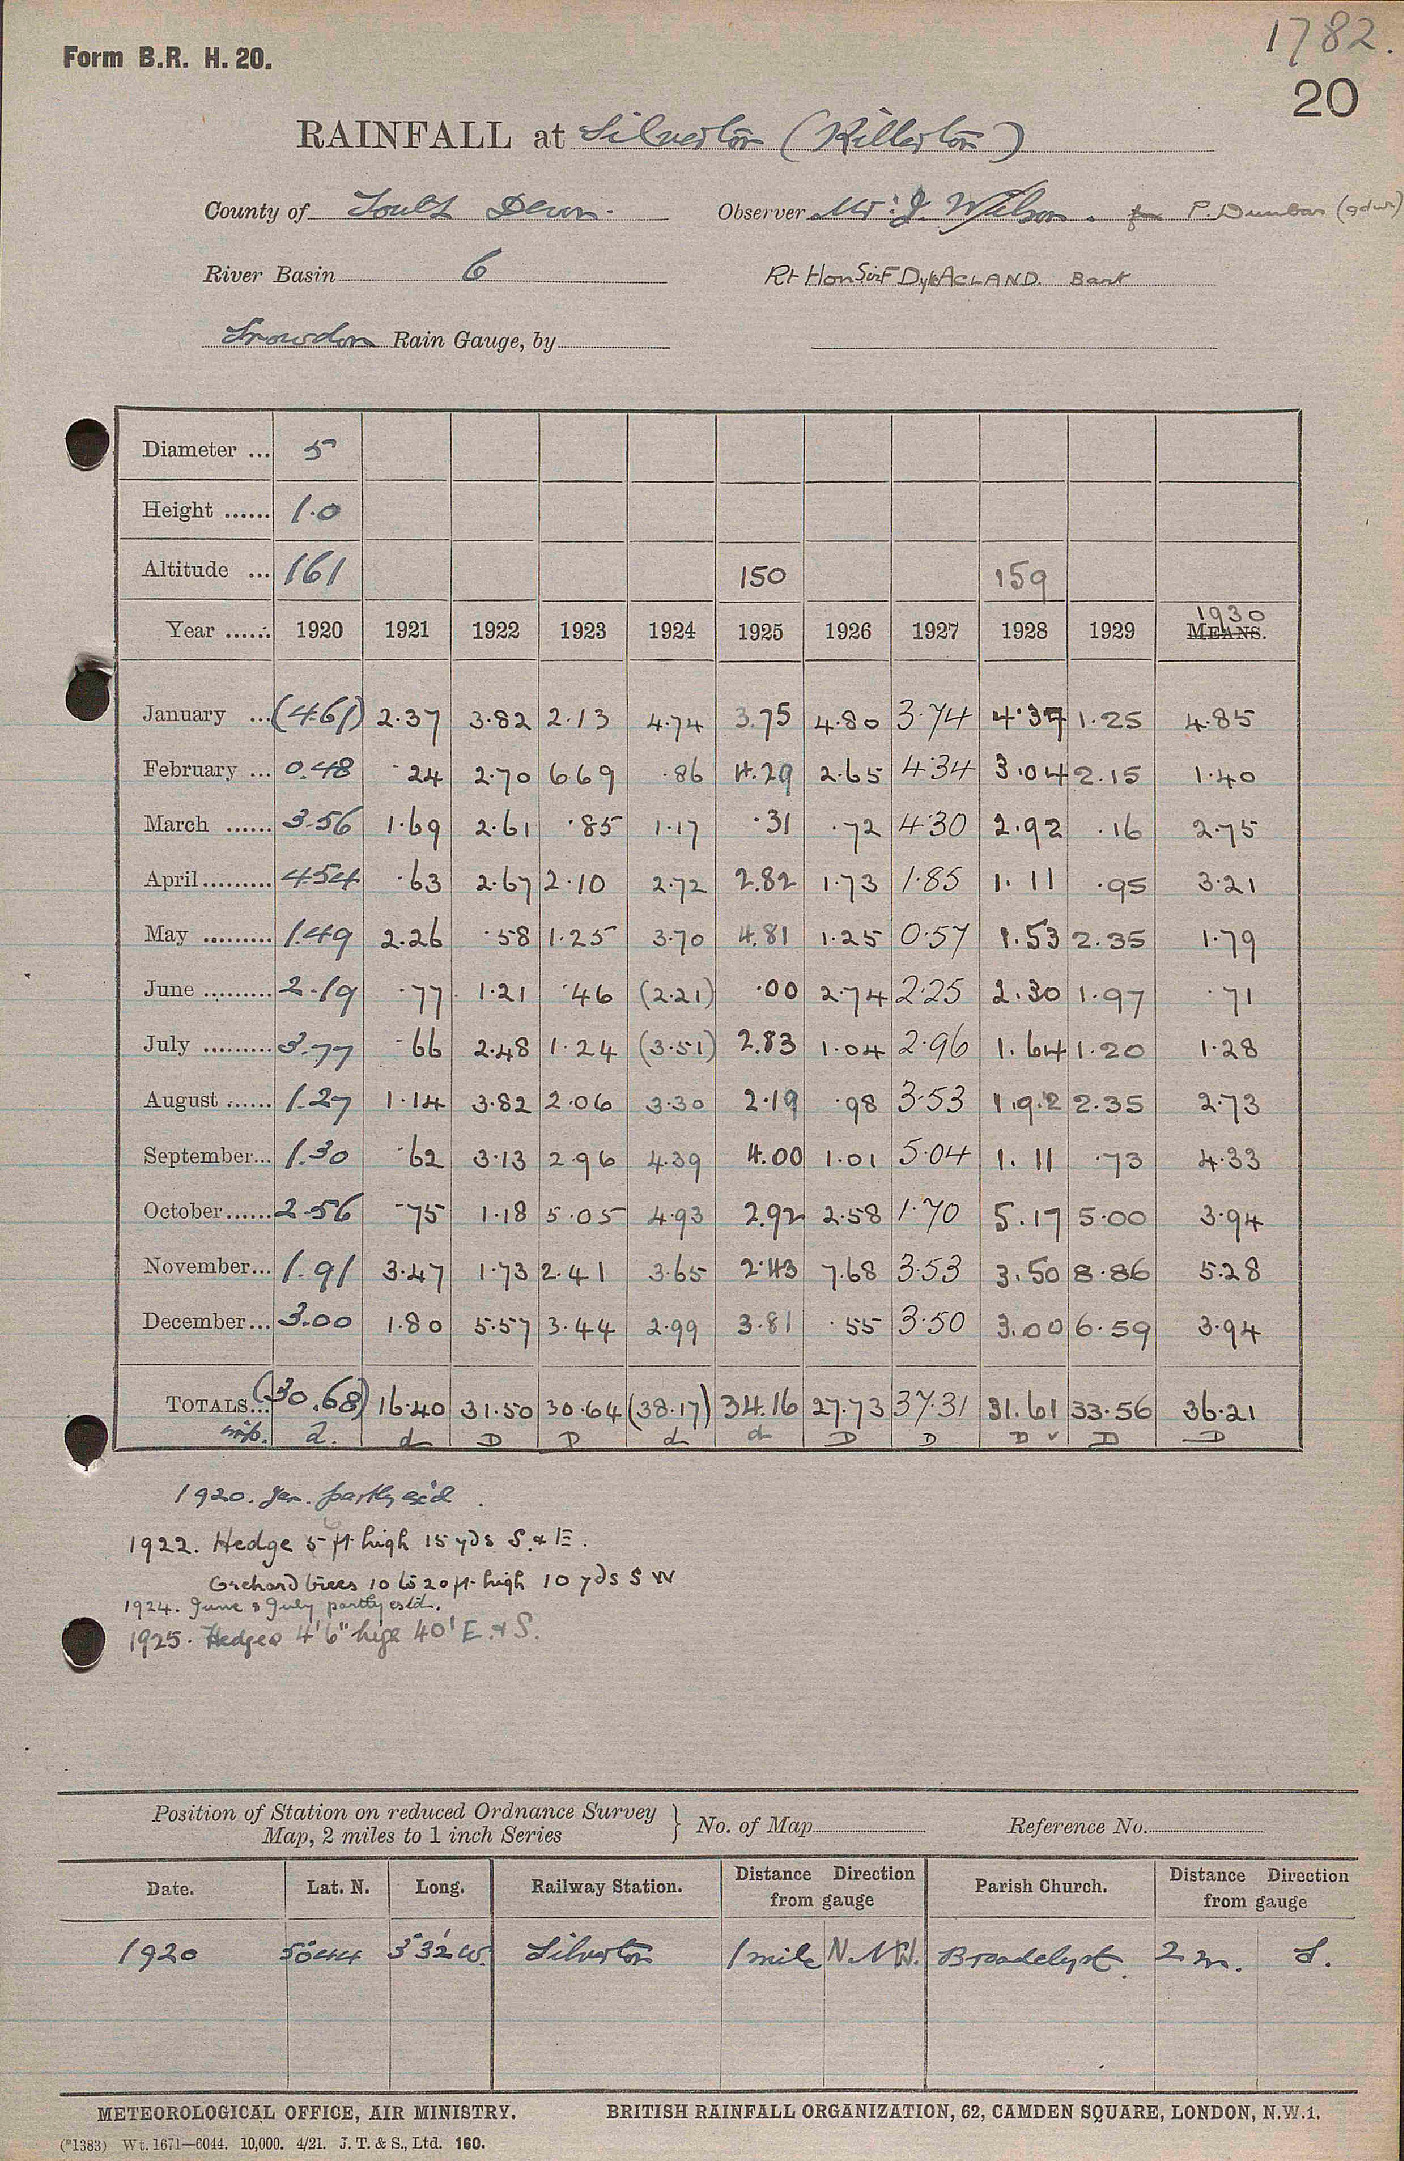 1782.
Form B.R. H. 20.
20
RAINFALL at Silverton (Killerton)
County of South Devon. Observer Mr. J. Wilson. for P. Dunbar (gdnr)
River Basin 6 Rt Hon Sir F Dyke ACLAND. Bart
Snowdon Rain Gauge, by
Diameter ... 5
Height ...... 1.0
Altitude ... 161 150 159
Year ...... 1920 1921 1922 1923 1924 1925 1926 1927 1928 1929 1930 MEANS.
January ... (4.61) 2.37 3.82 2.13 4.74 3.75 4.80 3.74 4.37 1.25 4.85
February ... 0.48 .24 2.70 6 69 .86 4.29 2.65 4.34 3.04 2.15 1.40
March ...... 3.56 1.69 2.61 .85 1.17 .31 .72 4.30 2.92 .16 2.75
April ......... 4.54 .63 2.67 2.10 2.72 2.82 1.73 1.85 1.11 .95 3.21
May ......... 1.49 2.26 .58 1.25 3.70 4.81 1.25 0.57 1.53 2.35 1.79
June ......... 2.19 .77 1.21 .46 (2.21) .00 2.74 2.25 2.30 1.97 .71
July ......... 3.77 .66 2.48 1.24 (3.51) 2.83 1.04 2.96 1.64 1.20 1.28
August ...... 1.27 1.14 3.82 2.06 3.30 2.19 .98 3.53 1.92 2.35 2.73
September... 1.30 .62 3.13 2.96 4.39 4.00 1.01 5.04 1.11 .73 4.33
October ...... 2.56 .75 1.18 5.05 4.93 2.92 2.58 1.70 5.17 5.00 3.94
November... 1.91 3.47 1.73 2.41 3.65 2.43 7.68 3.53 3.50 8.86 5.28
December... 3.00 1.80 5.57 3.44 2.99 3.81 .55 3.50 3.00 6.59 3.94
TOTALS... (30.68) 16.40 31.50 30.64 (38.17) 34.16 27.73 37.31 31.61 33.56 36.21
d. d D D d d D D D v D D
1920. Jan. partly est'd.
1922. Hedge 5 ft high 15 yds S. & E.
Orchard trees 10 to 20 ft. high 10 yds S W
1924. June & July partly est'd.
1925. Hedges 4' 6" high 40' E. & S.
Position of Station on reduced Ordnance Survey Map, 2 miles to 1 inch Series } No. of Map Reference No.
Date. Lat. N. Long. Railway Station. Distance Direction from gauge Parish Church. Distance Direction from gauge
1920 50°44 3°32' W. Silverton 1 mile N.N.W. Broadclyst. 2 m. S.
METEOROLOGICAL OFFICE, AIR MINISTRY. BRITISH RAINFALL ORGANIZATION, 62, CAMDEN SQUARE, LONDON, N.W.1.
(*1383) Wt. 1671—6044. 10,000. 4/21. J. T. & S., Ltd. 160.